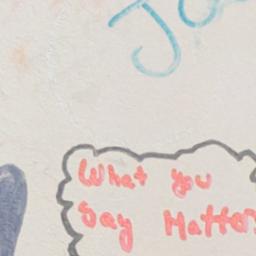 What you
Say Matters